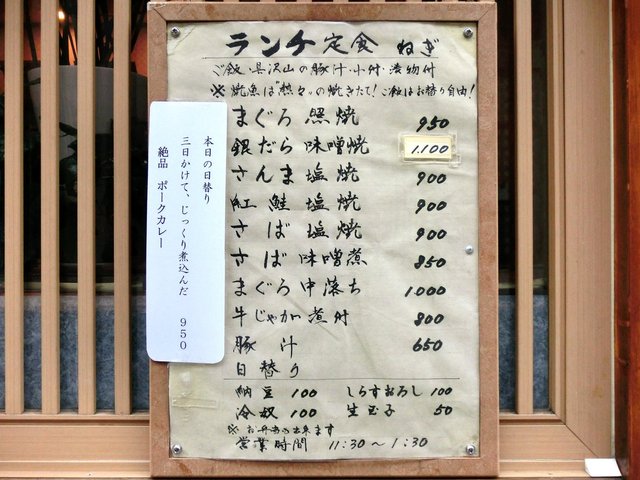 ランチ定食 ねぎ
ご飯・具沢山の豚汁・小付・漬物付
※焼魚は"熱々"の焼きたて!ご飯はお替り自由!
まぐろ 照焼 950
銀だら 味噌焼 1.100
さんま 塩焼 900
紅鮭 塩焼 900
さば 塩焼 900
さば 味噌煮 850
まぐろ 中落ち 1000
牛じゃが煮付 800
豚汁 650
日替り
納豆 100 しらすおろし 100
冷奴 100 生玉子 50
※お弁当も出来ます
営業時間 11:30〜1:30
本日の日替り
三日かけて、じっくり煮込んだ
絶品 ポークカレー
950